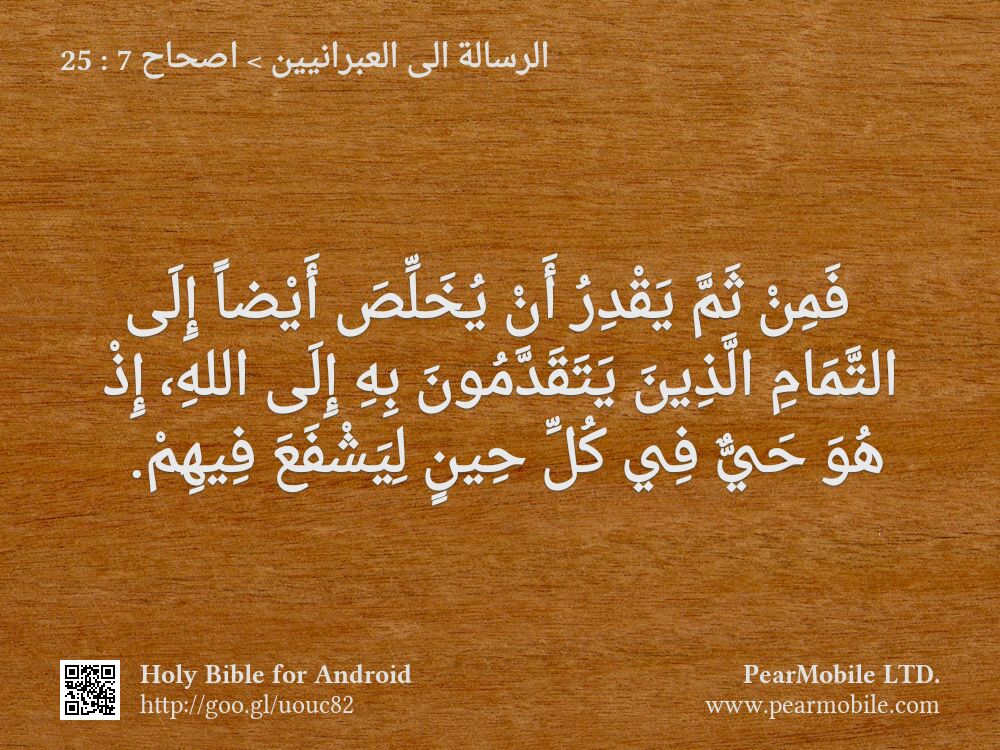 الرسالة الى العبرانيين > اصحاح 7 : 25
فَمِنْ ثَمَّ يَقْدِرُ أَنْ يُخَلِّصَ أَيْضاً إِلَى
التَّمَامِ الَّذِينَ يَتَقَدَّمُونَ بِهِ إِلَى اللهِ، إِذْ
هُوَ حَيٌّ فِي كُلِّ حِينٍ لِيَشْفَعَ فِيهِمْ.
Holy Bible for Android
http://goo.gl/uouc82
PearMobile LTD.
www.pearmobile.com